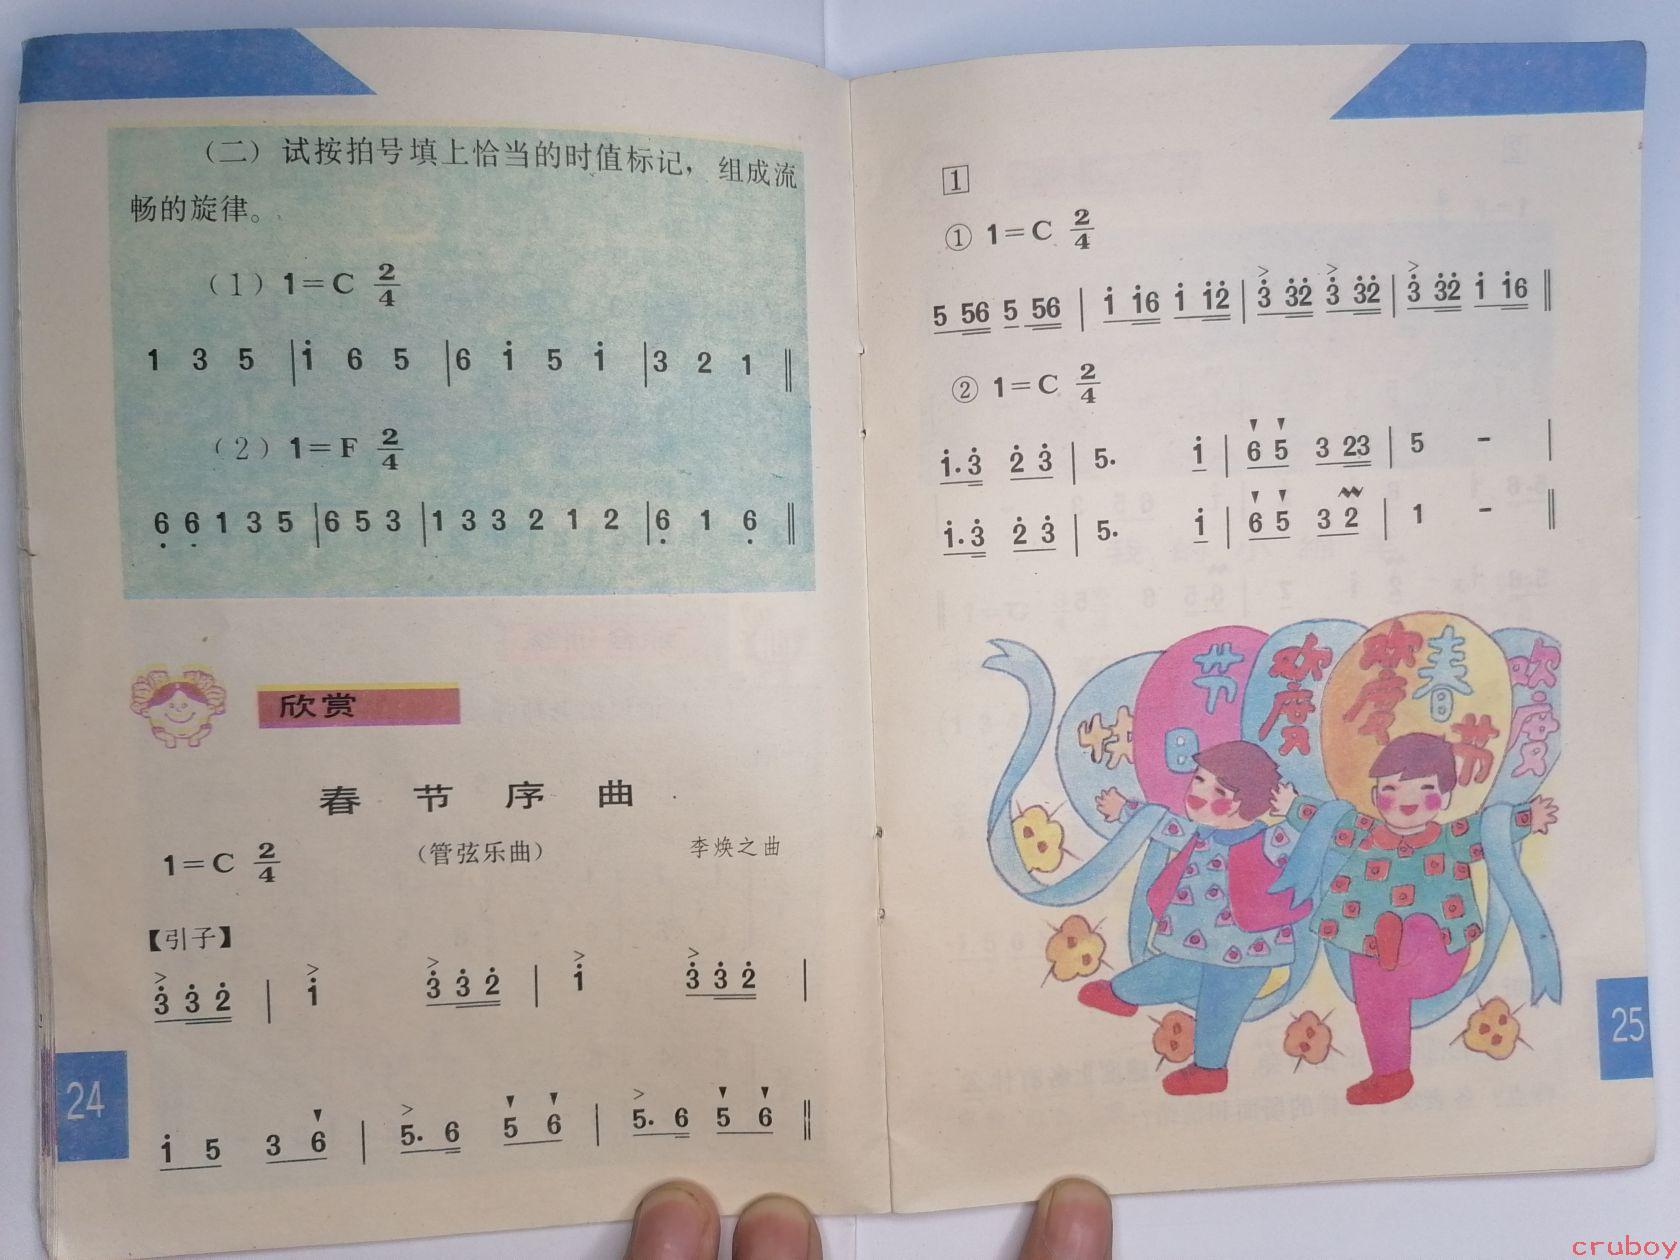 （二）试按拍号填上恰当的时值标记，组成流
畅的旋律。
（1）1=C 2/4
1 3 5 | i̇ 6 5 | 6 i̇ 5 i̇ | 3 2 1 ‖
（2）1=F 2/4
6̣ 6̣ 1 3 5 | 6 5 3 | 1 3 3 2 1 2 | 6̣ 1 6̣ ‖
欣赏
春节序曲
1=C 2/4 （管弦乐曲） 李焕之曲
【引子】
3̇ 3̇ 2̇ | 1̇ 3̇ 3̇ 2̇ | 1̇ 3̇ 3̇ 2̇ |
1̇ 5 3 6 | 5. 6 5 6 | 5. 6 5 6 ‖
24
1
① 1=C 2/4
5 56 5 56 | 1̇ 1̇6 1̇ 1̇2̇ | 3̇ 3̇2̇ 3̇ 3̇2̇ | 3̇ 3̇2̇ 1̇ 1̇6 ‖
② 1=C 2/4
1̇. 3̇ 2̇ 3̇ | 5. 1̇ | 6 5 3 23 | 5 - |
1̇. 3̇ 2̇ 3̇ | 5. 1̇ | 6 5 3 2 | 1 - ‖
快
节日
欢度
欢度春节
欢度
25
cruboy